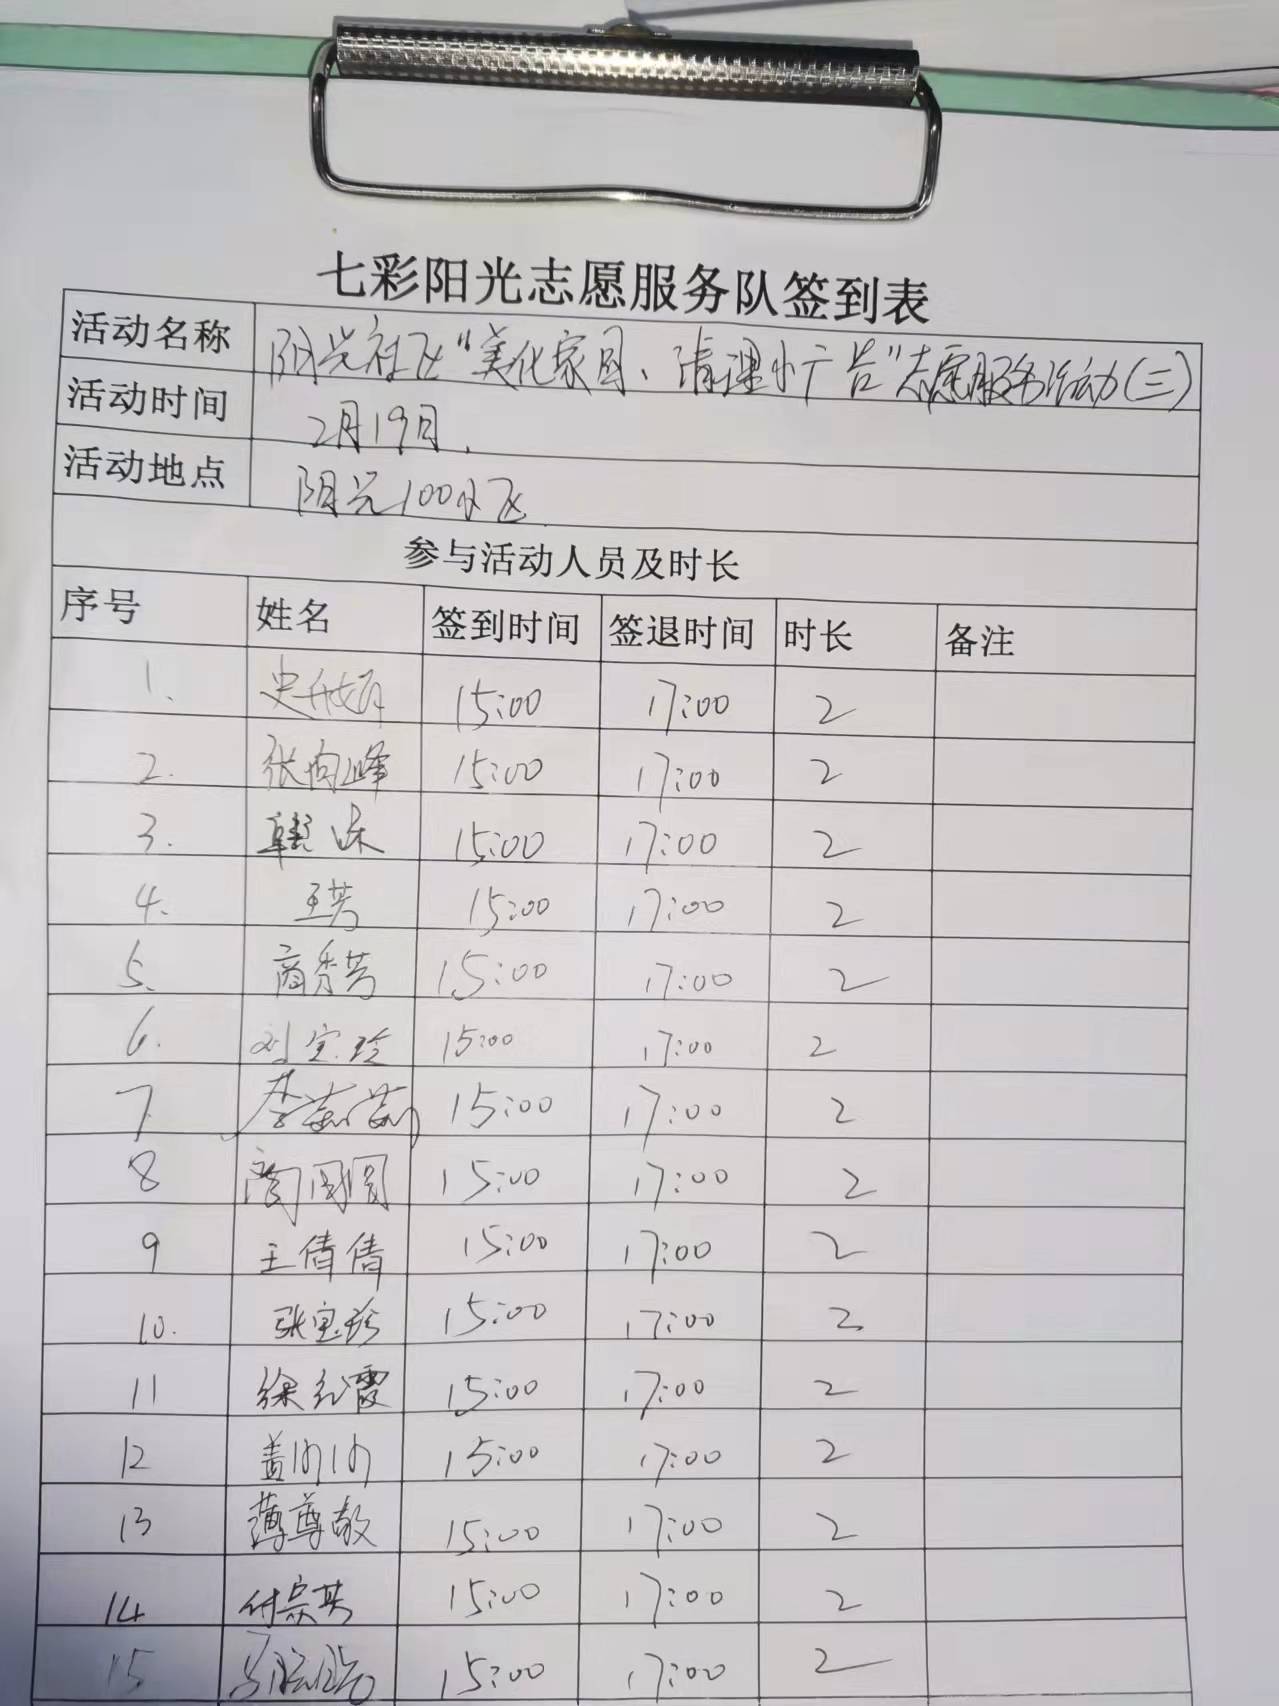 七彩阳光志愿服务队签到表
活动名称 阳光社区“美化家园、清理小广告”志愿服务活动(三)
活动时间 2月19日.
活动地点 阳光100小区
参与活动人员及时长
序号 姓名 签到时间 签退时间 时长 备注
1. 史 15:00 17:00 2
2. 张向峰 15:00 17:00 2
3. 韩咏 15:00 17:00 2
4. 王芳 15:00 17:00 2
5. 商秀芳 15:00 17:00 2
6. 刘宝玲 15:00 17:00 2
7. 李莉莉 15:00 17:00 2
8 商圆圆 15:00 17:00 2
9 王倩倩 15:00 17:00 2
10. 张宝珍 15:00 17:00 2
11 徐红霞 15:00 17:00 2
12 盖 15:00 17:00 2
13 薄尊敬 15:00 17:00 2
14 付宗英 15:00 17:00 2
15 15:00 17:00 2